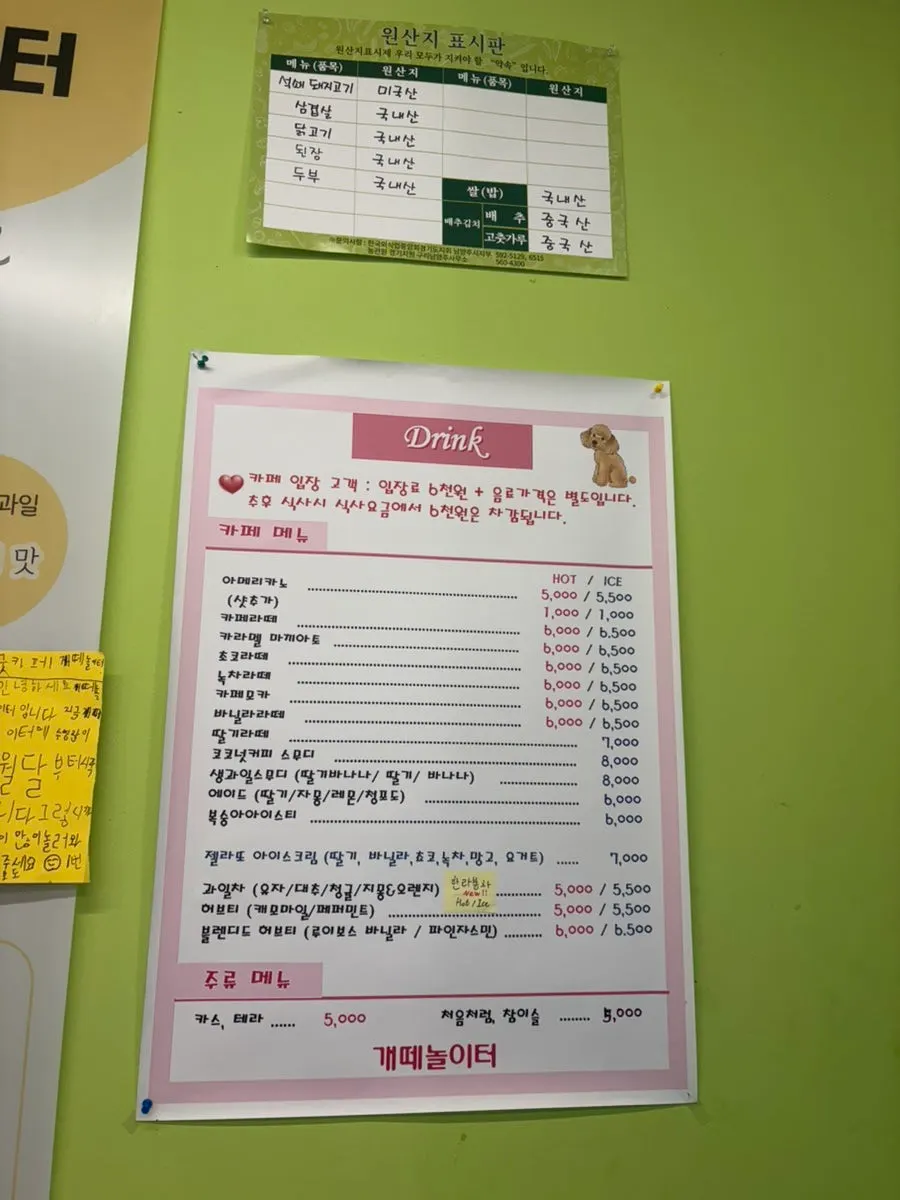 터
원산지 표시판
원산지표시제 우리 모두가 지켜야 할 "약속" 입니다.
메뉴(품목) 원산지 메뉴(품목) 원산지
석쇠 돼지고기 미국산
삼겹살 국내산
닭고기 국내산
된장 국내산
두부 국내산
쌀(밥) 국내산
배추김치 배추 중국산
고춧가루 중국산
※문의사항 : 한국외식업중앙회경기도지회 남양주시지부 592-5129, 6515
농관원 경기지원 구리남양주사무소 560-4300
과일
맛
Drink
카페 입장 고객 : 입장료 6천원 + 음료가격은 별도입니다.
추후 식사시 식사요금에서 6천원은 차감됩니다.
카페 메뉴
HOT / ICE
아메리카노 5,000 / 5,500
(샷추가) 1,000 / 1,000
카페라떼 6,000 / 6.500
카라멜 마끼아또 6,000 / 6,500
초코라떼 6,000 / 6,500
녹차라떼 6,000 / 6,500
카페모카 6,000 / 6,500
바닐라라떼 6,000 / 6,500
딸기라떼 7,000
코코넛커피 스무디 8,000
생과일스무디 (딸기바나나/ 딸기/ 바나나) 8,000
에이드 (딸기/자몽/레몬/청포도) 6,000
복숭아아이스티 6,000
젤라또 아이스크림 (딸기, 바닐라,쵸코,녹차,망고, 요거트) ...... 7,000
과일차 (유자/대추/청귤/자몽&오렌지) 5,000 / 5,500
한라봉차
New!!
Hot / Ice
허브티 (캐모마일/페퍼민트) 5,000 / 5,500
블렌디드 허브티 (루이보스 바닐라 / 파인자스민) .......... 6,000 / 6.500
주류 메뉴
카스, 테라 ...... 5,000 처음처럼, 참이슬 ........ 5,000
개떼놀이터
개떼놀이터
안녕하세요 개떼놀
이터 입니다 지금
이터에 수영장이
월달 부터
니다 그럼
이 많이 놀러와
주세요 1번